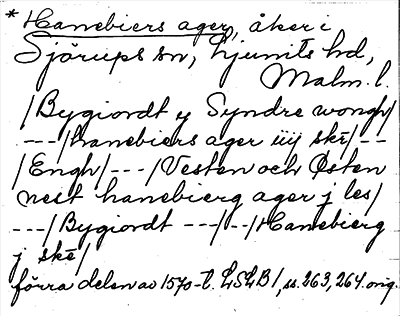 * Hanebiers ager, åker i
Sjörups sn, Ljunits hd,
Malm. l.
/Bygiordt y Syndre wongh/
---/hanebiers ager iiij skē/--
/Engh/---/Vesten och Østen
nest hanebierg ager j les/
---/Bygiordt ---/--/Hanebierg
j skē/
förra delen av 1570-t. LSLB1, ss. 263, 264. orig.